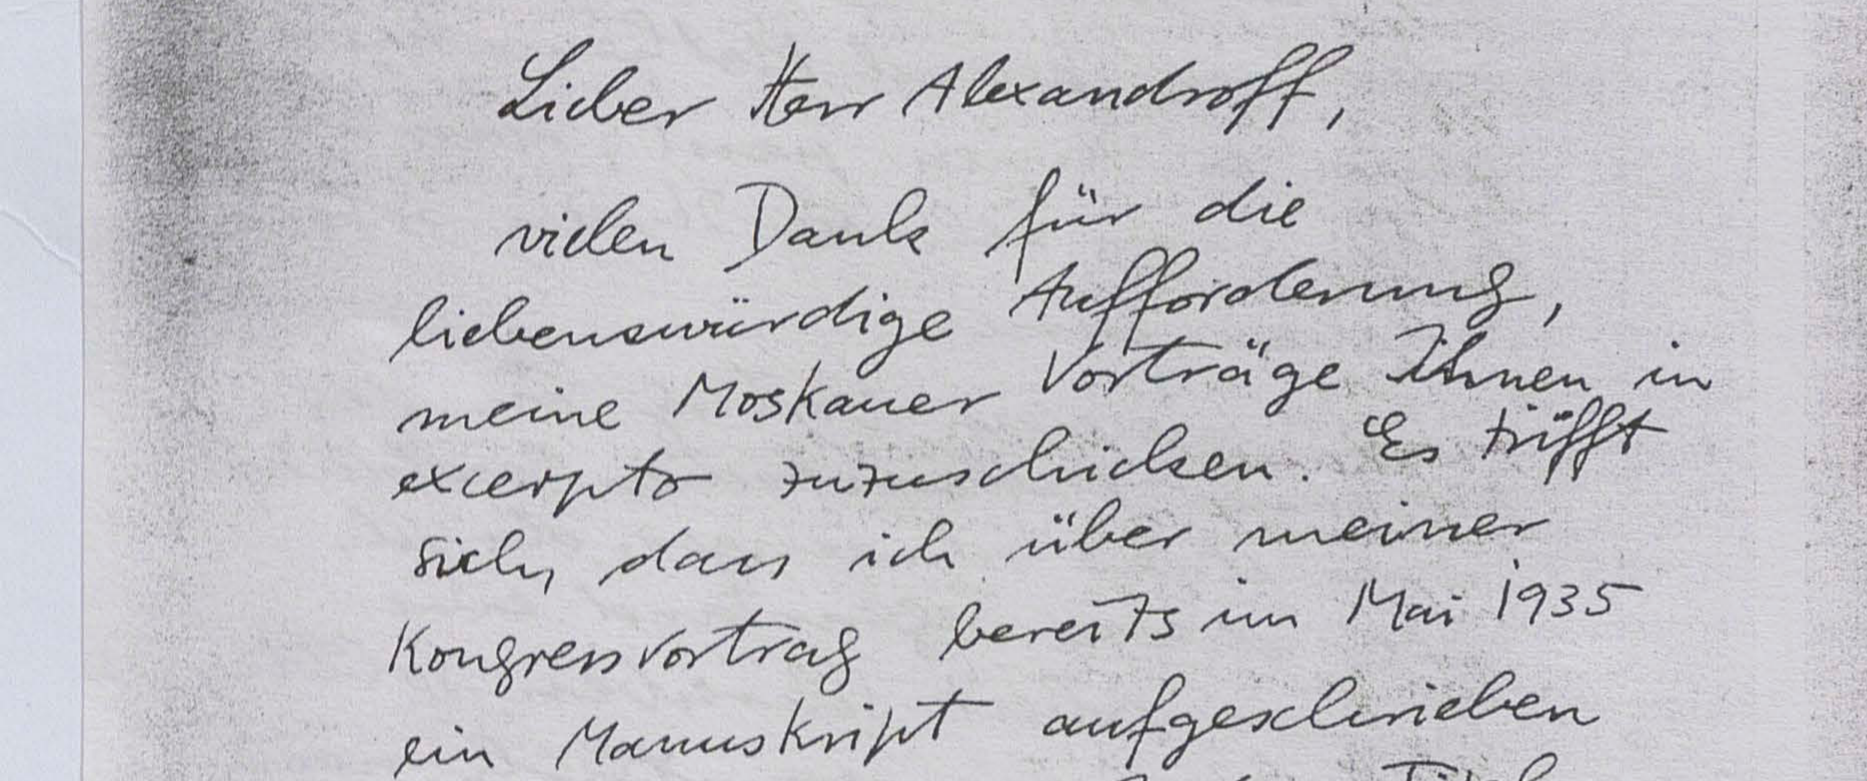 Lieber Herr Alexandroff,
vielen Dank für die
liebenswürdige Aufforderung,
meine Moskauer Vorträge Ihnen in
excerpto zuzuschicken. Es trifft
sich, dass ich über meiner
Kongressvortrag bereits im Mai 1935
ein Manuskript aufgeschrieben
Titel